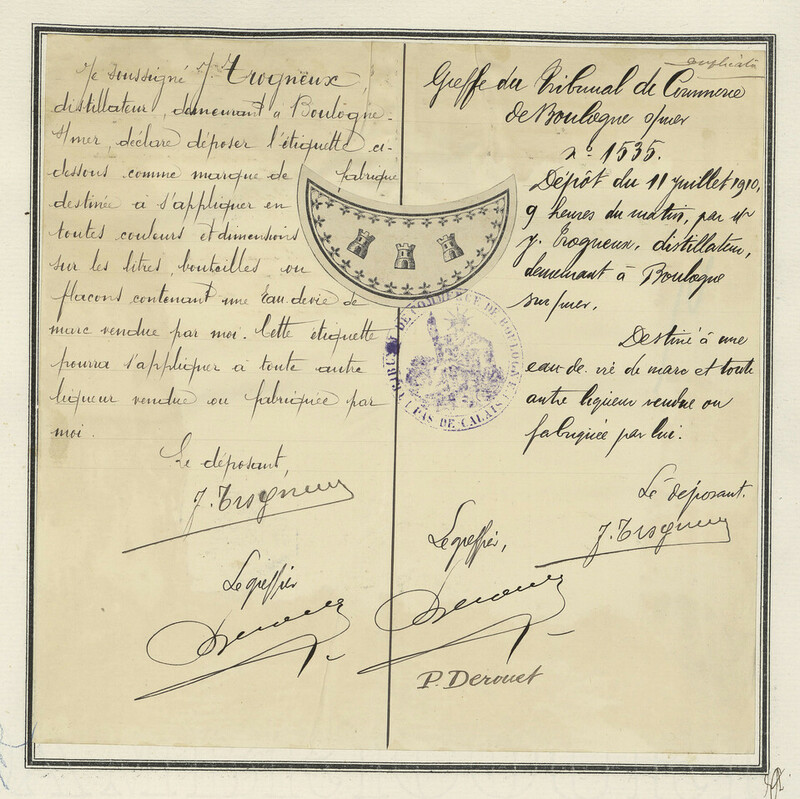 Je soussigné J. Trogneux,
distillateur, demeurant à Boulogne-
s/mer, déclare déposer l'étiquette ci-
dessous comme marque de fabrique
destinée à s'appliquer en
toutes couleurs et dimensions
sur les litres bouteilles ou
flacons contenant une Eau-de-vie de
marc vendue par moi. Cette étiquette
pourra s'appliquer à toute autre
liqueur vendue ou fabriquée par
moi.
Le déposant,
J. Trogneux
Le greffier
Derouet
duplicata
Greffe du Tribunal de Commerce
de Boulogne s/mer
No 1535.
Dépôt du 11 juillet 1910,
9 heures du matin, par Mr
J. Trogneux, distillateur,
demeurant à Boulogne
sur/mer.
Destiné à une
eau-de-vie de marc et toute
autre liqueur vendue ou
fabriquée par lui.
Le déposant.
J. Trogneux
Le greffier,
Derouet
P. Derouet
TRIBUNAL DE COMMERCE DE BOULOGNE S/MER
(PAS DE CALAIS)